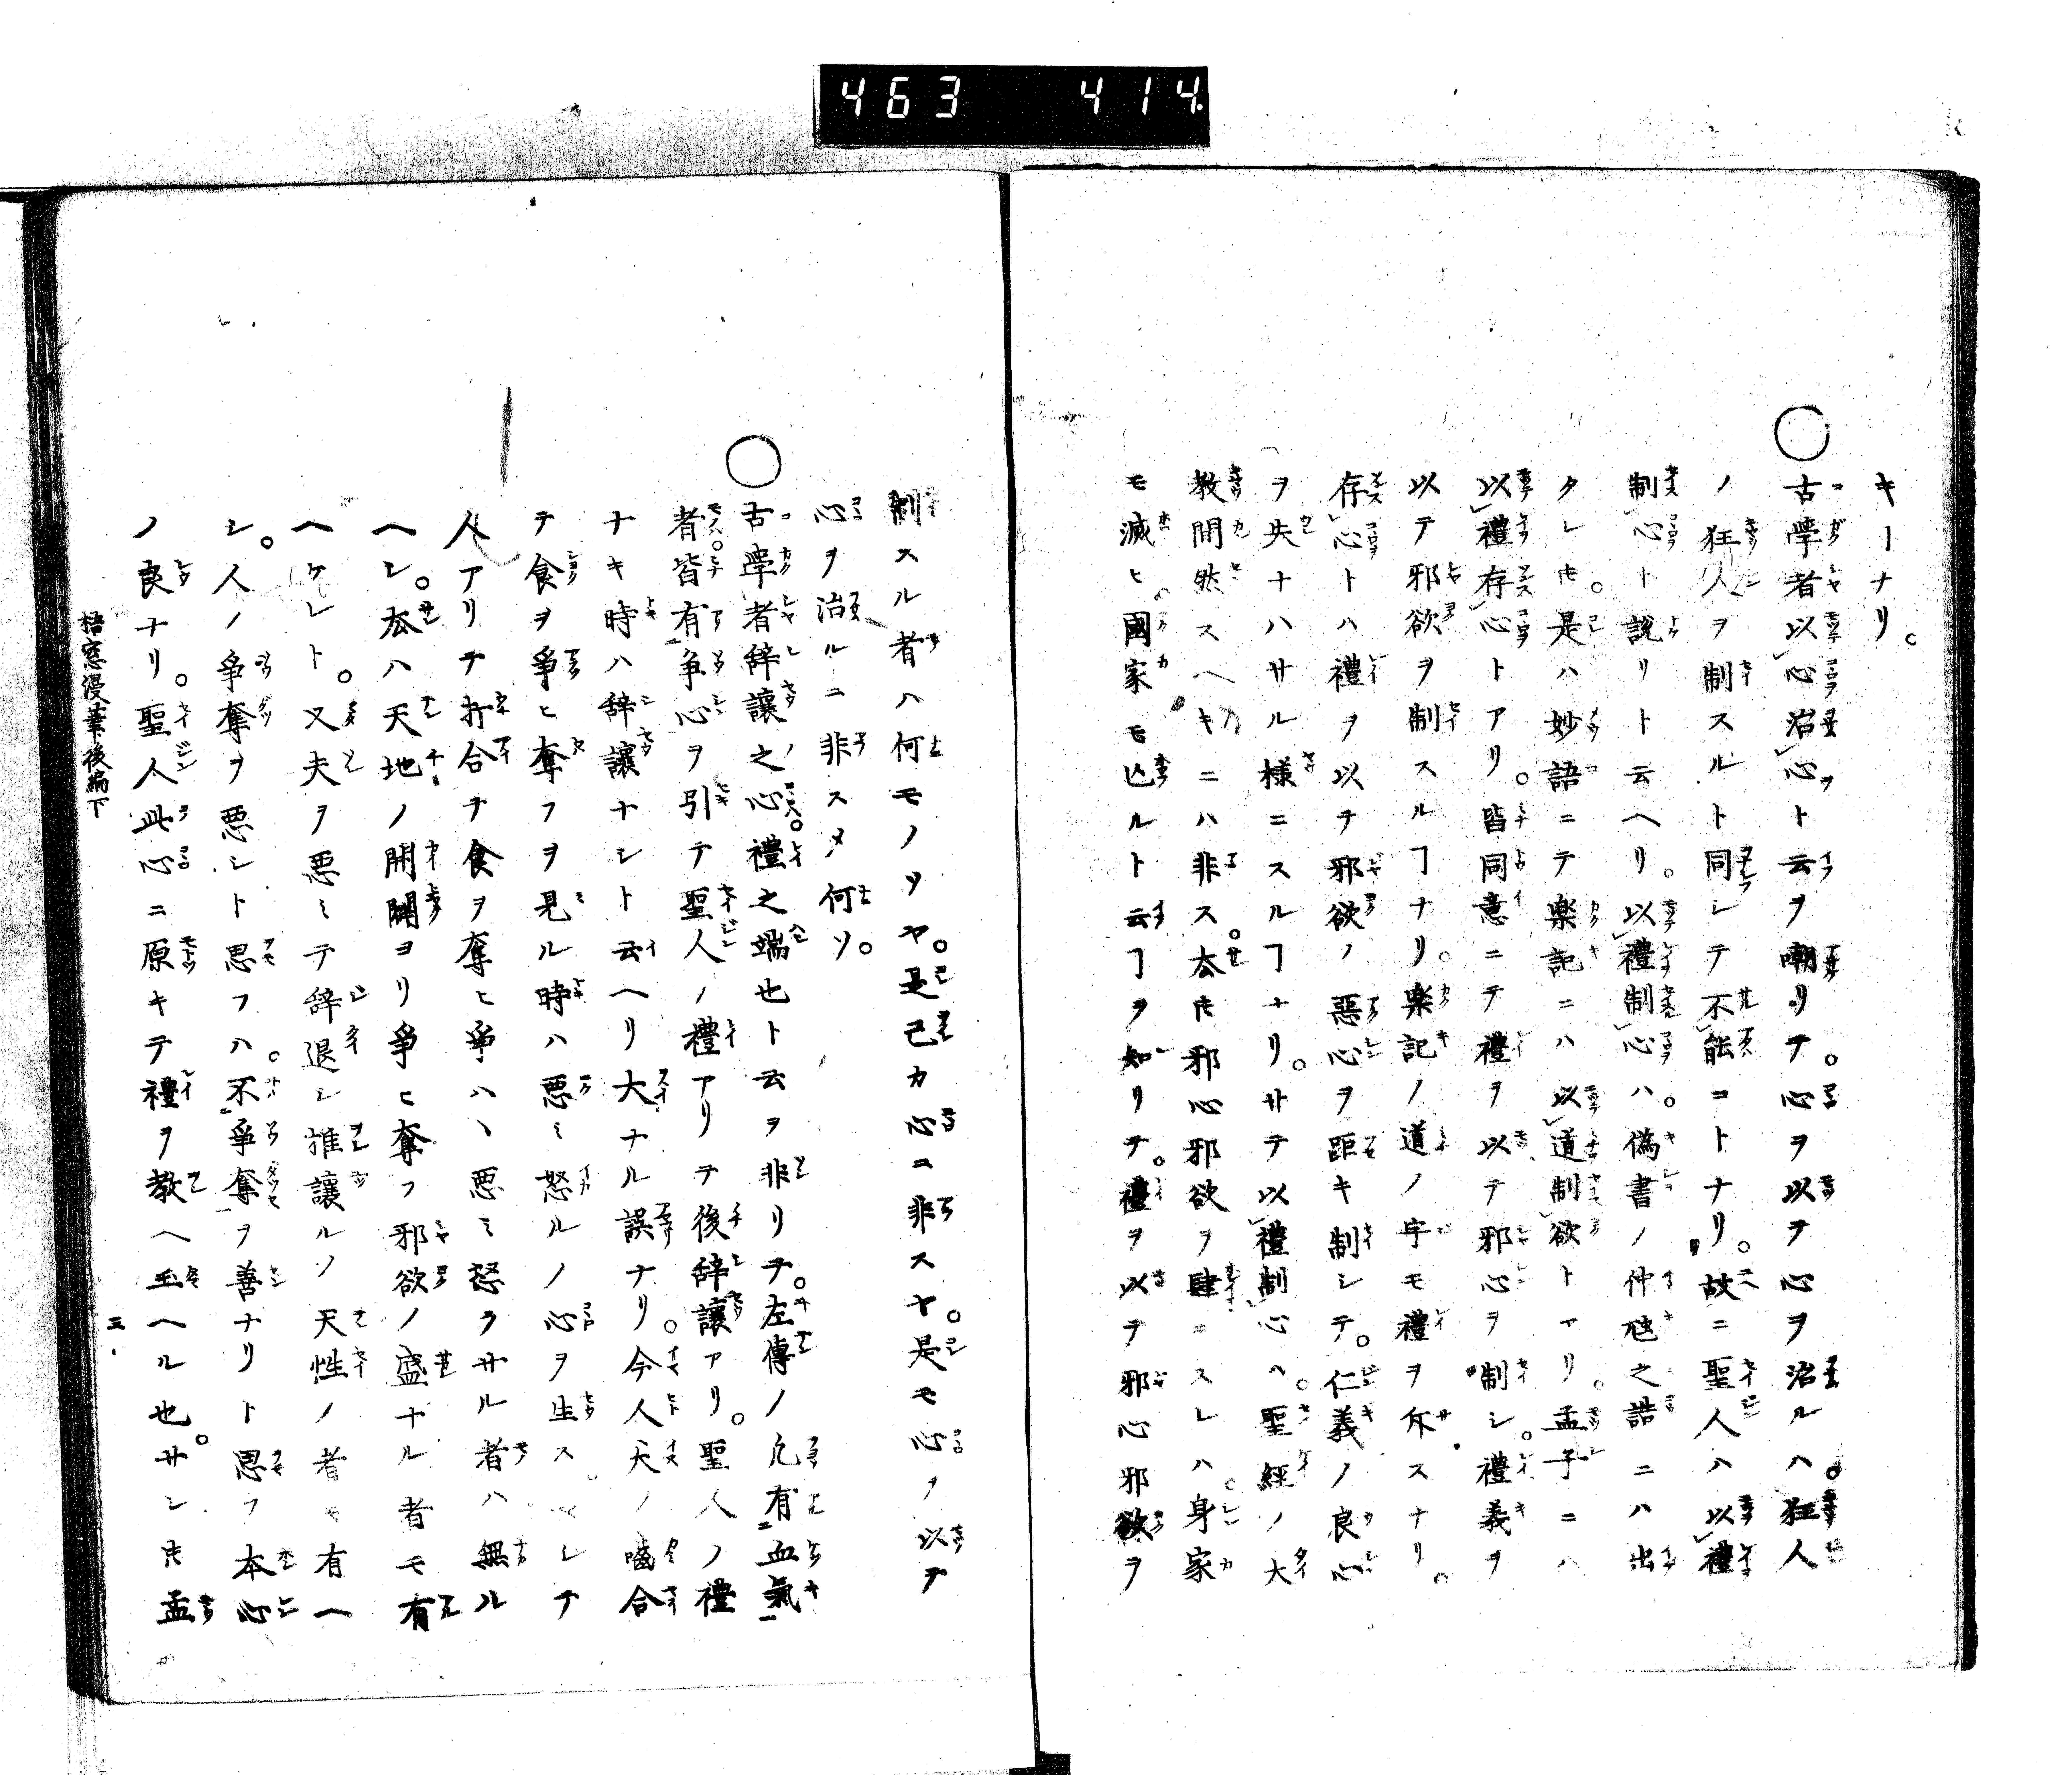 463 414.
キヿナリ。
○古學者以心治心ト云ヲ嘲リテ。心ヲ以テ心ヲ治ルハ。狂人
ノ狂人ヲ制スルト同シテ不能コトナリ。故ニ聖人ハ以禮
制心ト説リト云ヘリ。以禮制心ハ。偽書ノ仲虺之誥ニハ出
タレ𪜈。是ハ妙語ニテ楽記ニハ以道制欲トアリ。孟子ニハ
以禮存心トアリ。皆同意ニテ禮ヲ以テ邪心ヲ制シ。禮義ヲ
以テ邪欲ヲ制スルヿナリ。楽記ノ道ノ字モ禮ヲ斥スナリ。
存心トハ禮ヲ以テ邪欲ノ惡心ヲ距キ制シテ。仁義ノ良心
ヲ失ナハサル様ニスルヿナリ。サテ以禮制心ハ。聖經ノ大
教間然スヘキニハ非ス。杢𪜈邪心邪欲ヲ肆ニスレハ。身家
モ滅ヒ。國家モ亡ルト云ヿヲ知リテ。禮ヲ以テ邪心邪欲ヲ
制スル者ハ何モノソヤ。是己カ心ニ非スヤ。是モ心ヲ以テ
心ヲ治ルニ非スメ何ソ。
○古學者辞讓之心。禮之端也ト云ヲ非リテ。左傳ノ凡有血氣
者。皆有争心ヲ引テ聖人ノ禮アリテ後辞讓アリ。聖人ノ禮
ナキ時ハ辞讓ナシト云ヘリ大ナル誤ナリ。今人犬ノ噛合
テ食ヲ爭ヒ奪フヲ見ル時ハ悪ミ怒ルノ心ヲ生ス。レテ
人アリテ打合テ食ヲ奪ヒ爭ハヽ悪ミ怒ラサル者ハ無ル
ヘシ。杢ハ天地ノ開闢ヨリ爭ヒ奪フ邪欲ノ盛ナル者モ有
ヘケレト。又夫ヲ悪ミテ辞退シ推讓ルノ天性ノ者モ有ヘ
シ。人ノ爭奪ヲ悪シト思フハ。不爭奪ヲ善ナリト思フ本心
ノ良ナリ。聖人此心ニ原キテ禮ヲ教ヘ玉ヘル也。サレ𪜈孟
梧窓漫筆後編下
三